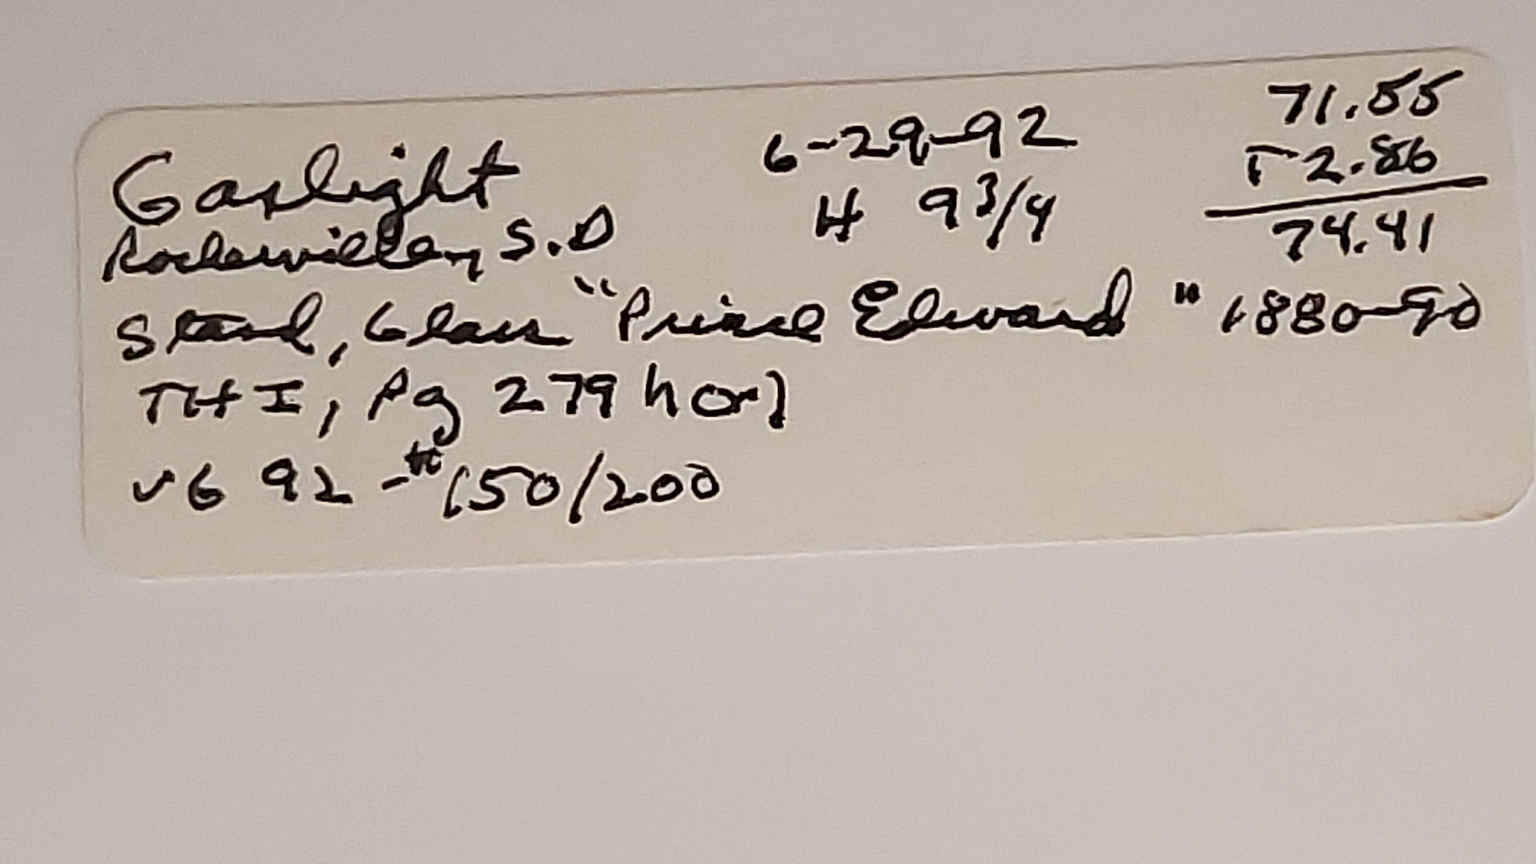 Gaslight 6-29-92 71.55
Rockerville, S.D H 9 3/4 T 2.86
74.41
Stand, Glass "Prince Edward" 1880-90
TH I, Pg 279 hor)
VG 92 - # 150/200